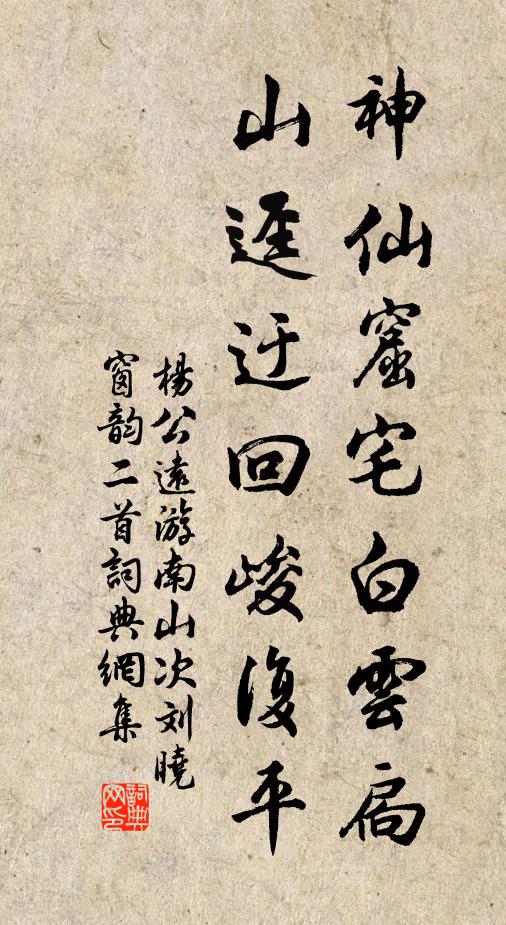 神仙窟宅白雲扃
山逕迂回峻復平
楊公遠游南山次刘曉
窗韵二首詞典網集
詞典
网印